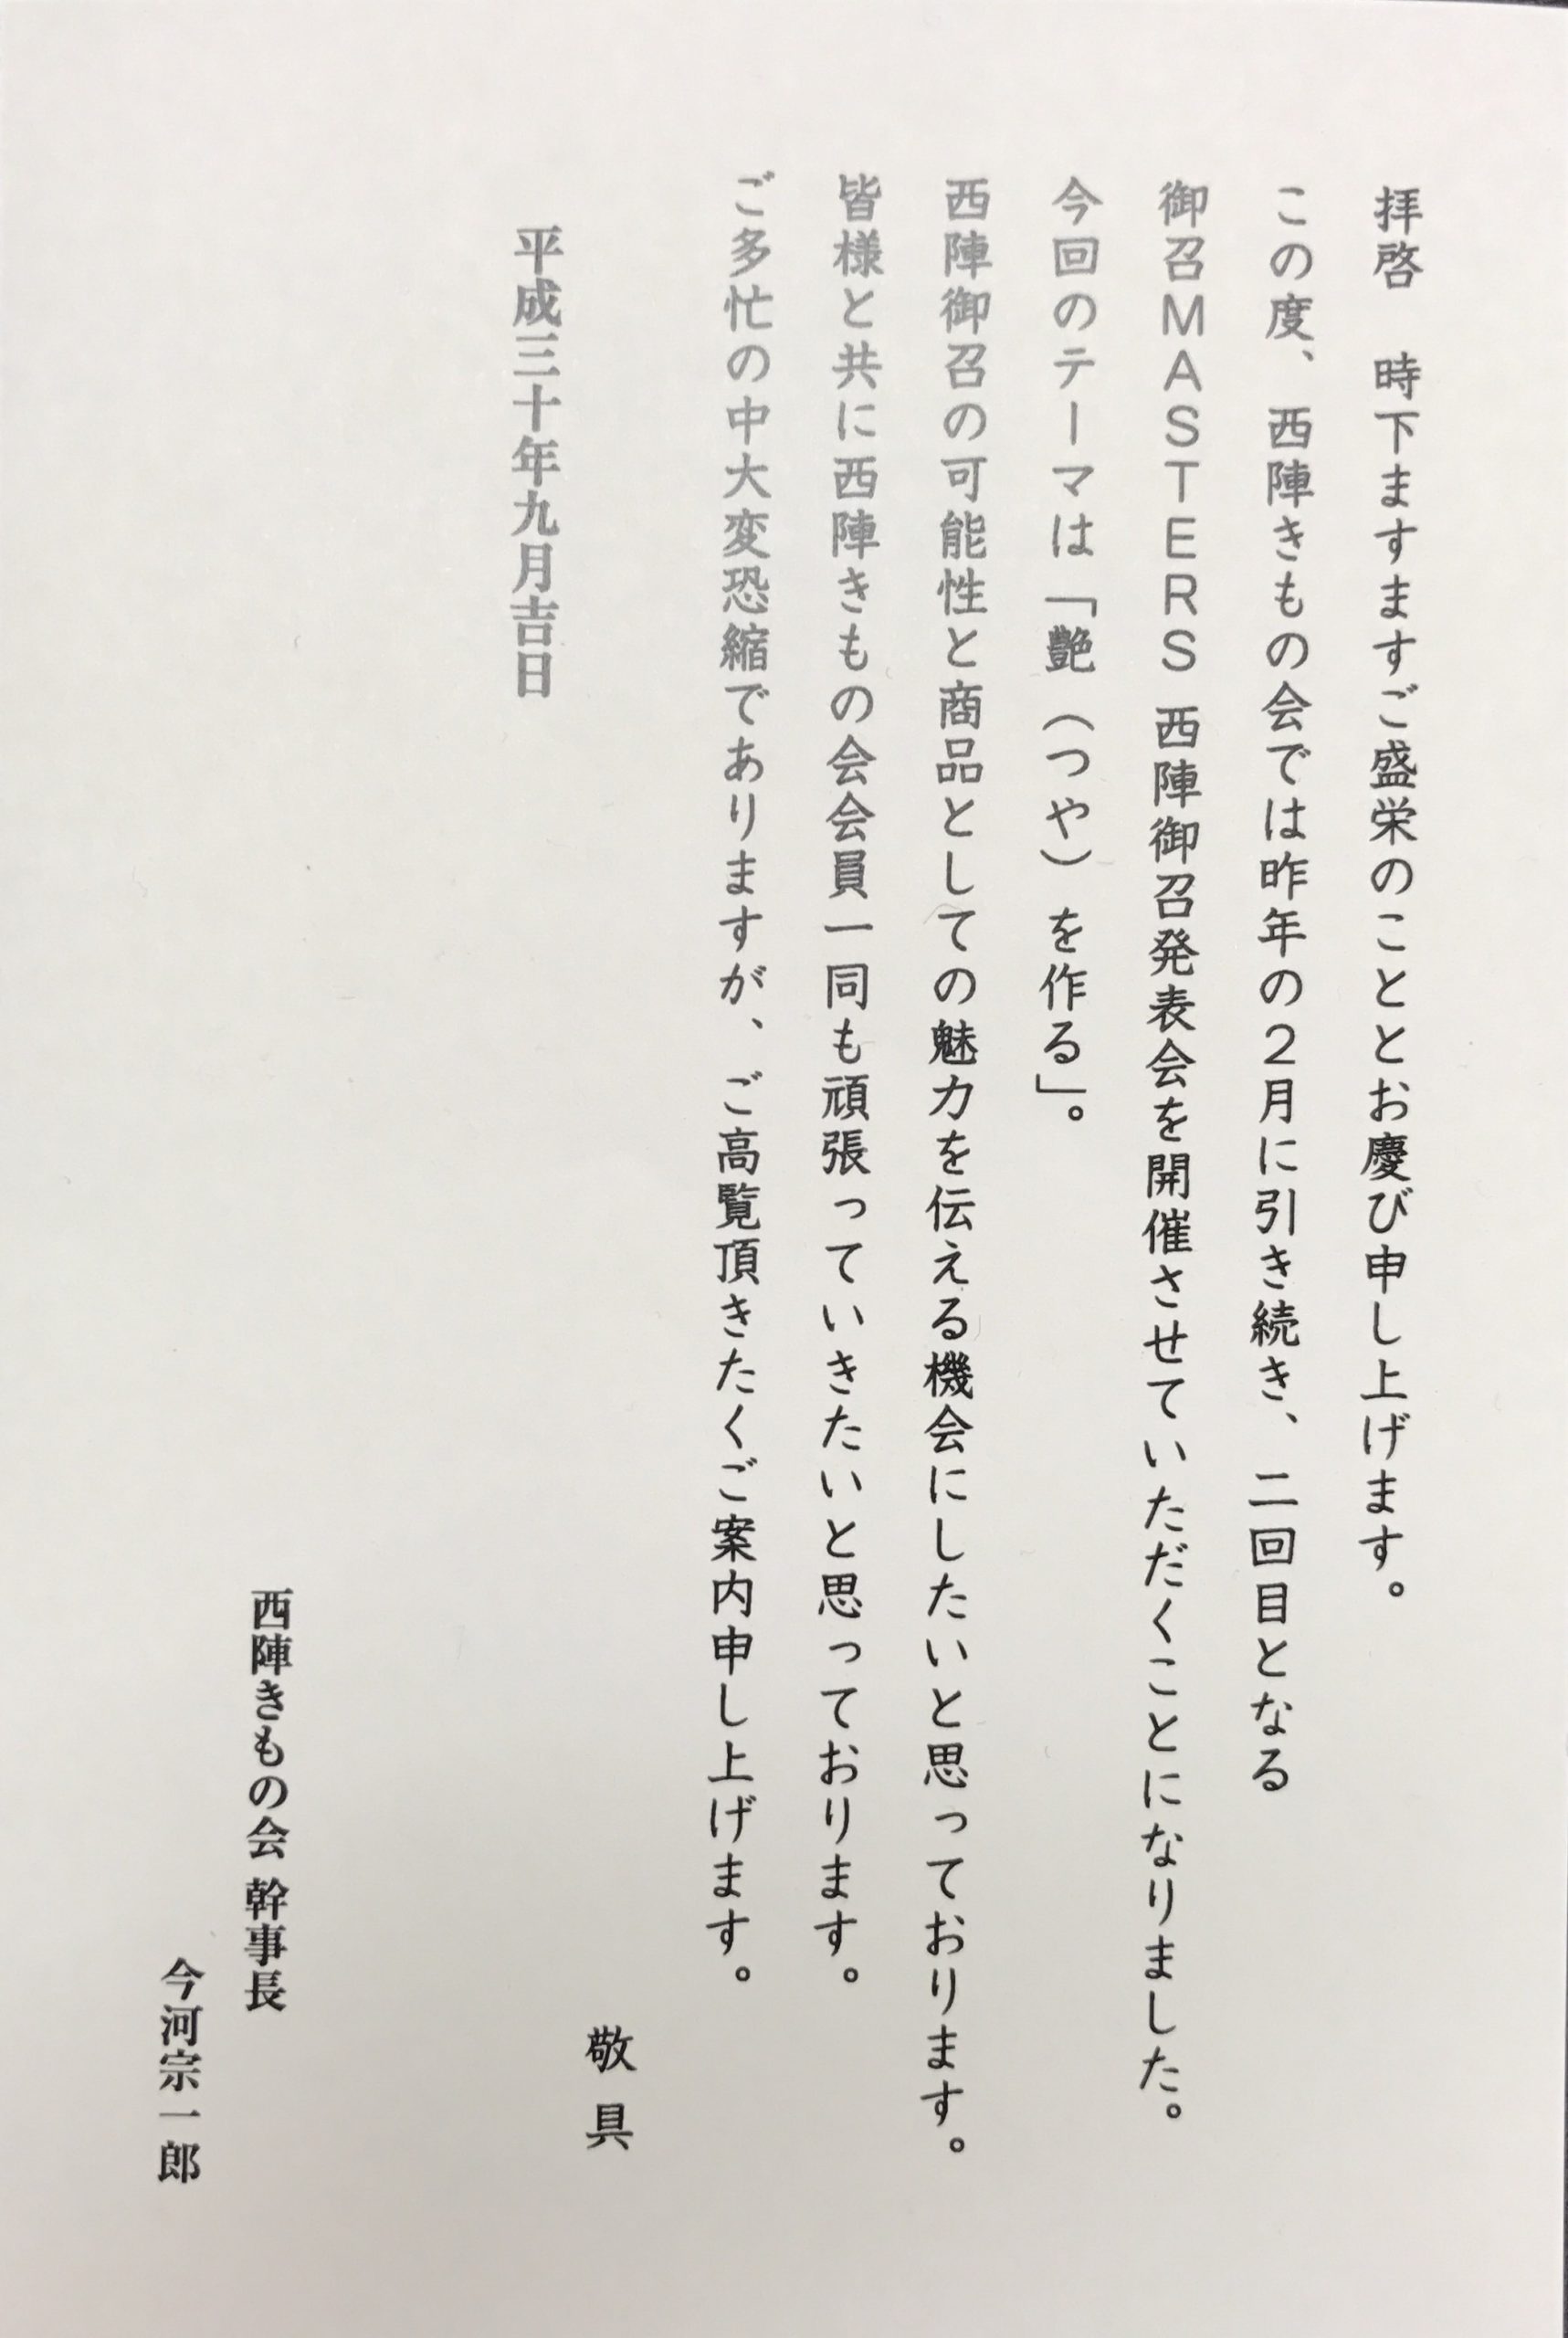 拝啓　時下ますますご盛栄のこととお慶び申し上げます。
この度、西陣きもの会では昨年の２月に引き続き、二回目となる
御召ＭＡＳＴＥＲＳ 西陣御召発表会を開催させていただくことになりました。
今回のテーマは「艶（つや）を作る」。
西陣御召の可能性と商品としての魅力を伝える機会にしたいと思っております。
皆様と共に西陣きもの会会員一同も頑張っていきたいと思っております。
ご多忙の中大変恐縮でありますが、ご高覧頂きたくご案内申し上げます。
敬具
平成三十年九月吉日
西陣きもの会 幹事長
今河宗一郎